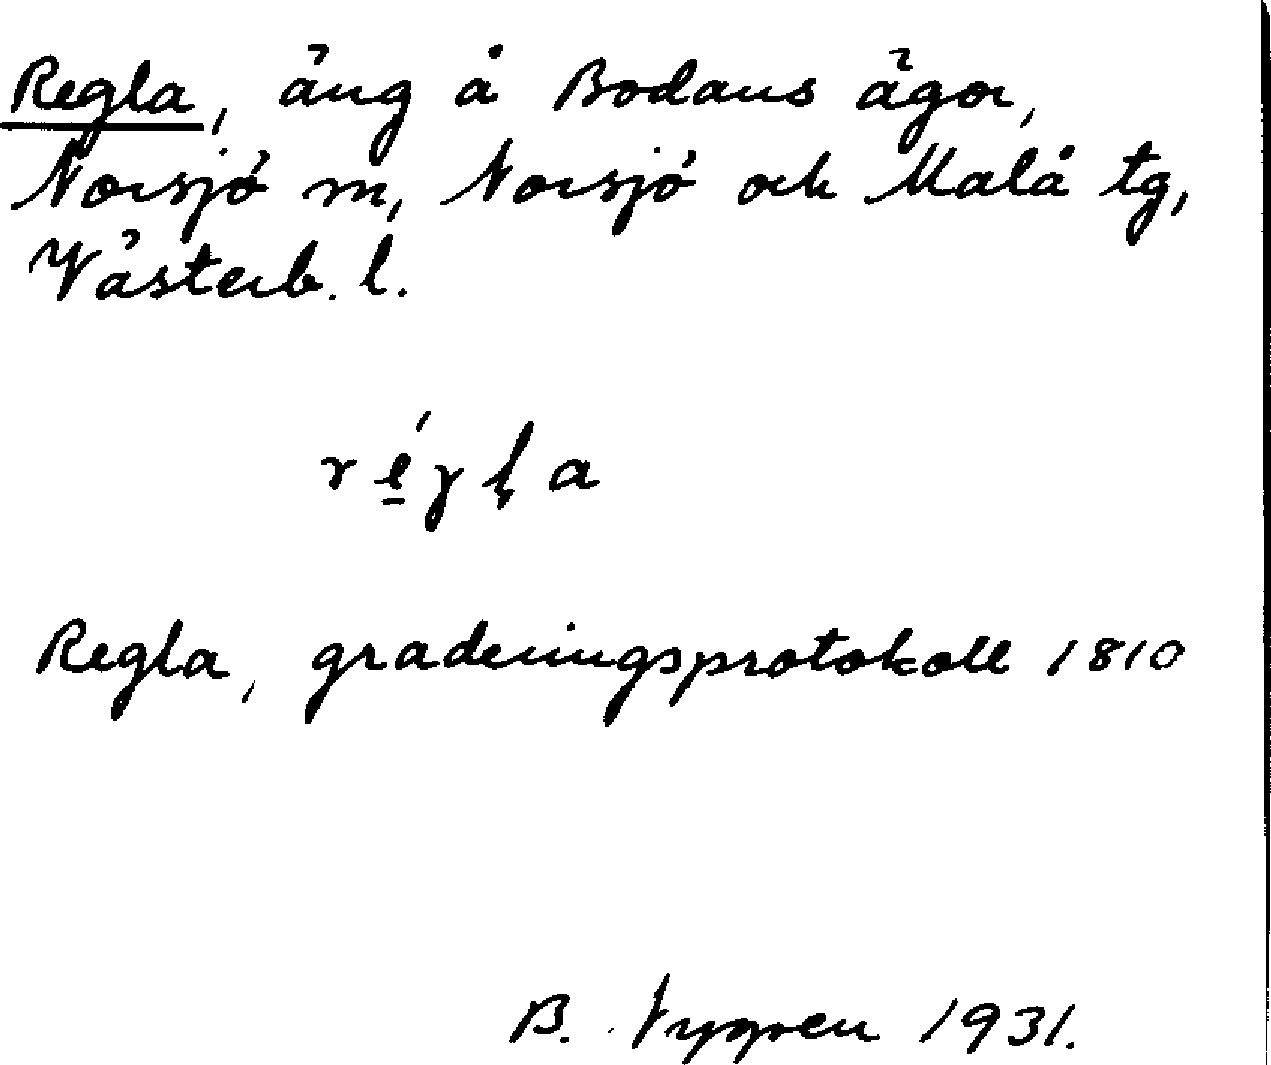 Regla, äng å Bodans ägor,
Norsjö m, Norsjö och Malå tg,
Västerb. l.
re̲´gḷa
Regla, graderingsprotokoll 1810
B. Nygren 1931.